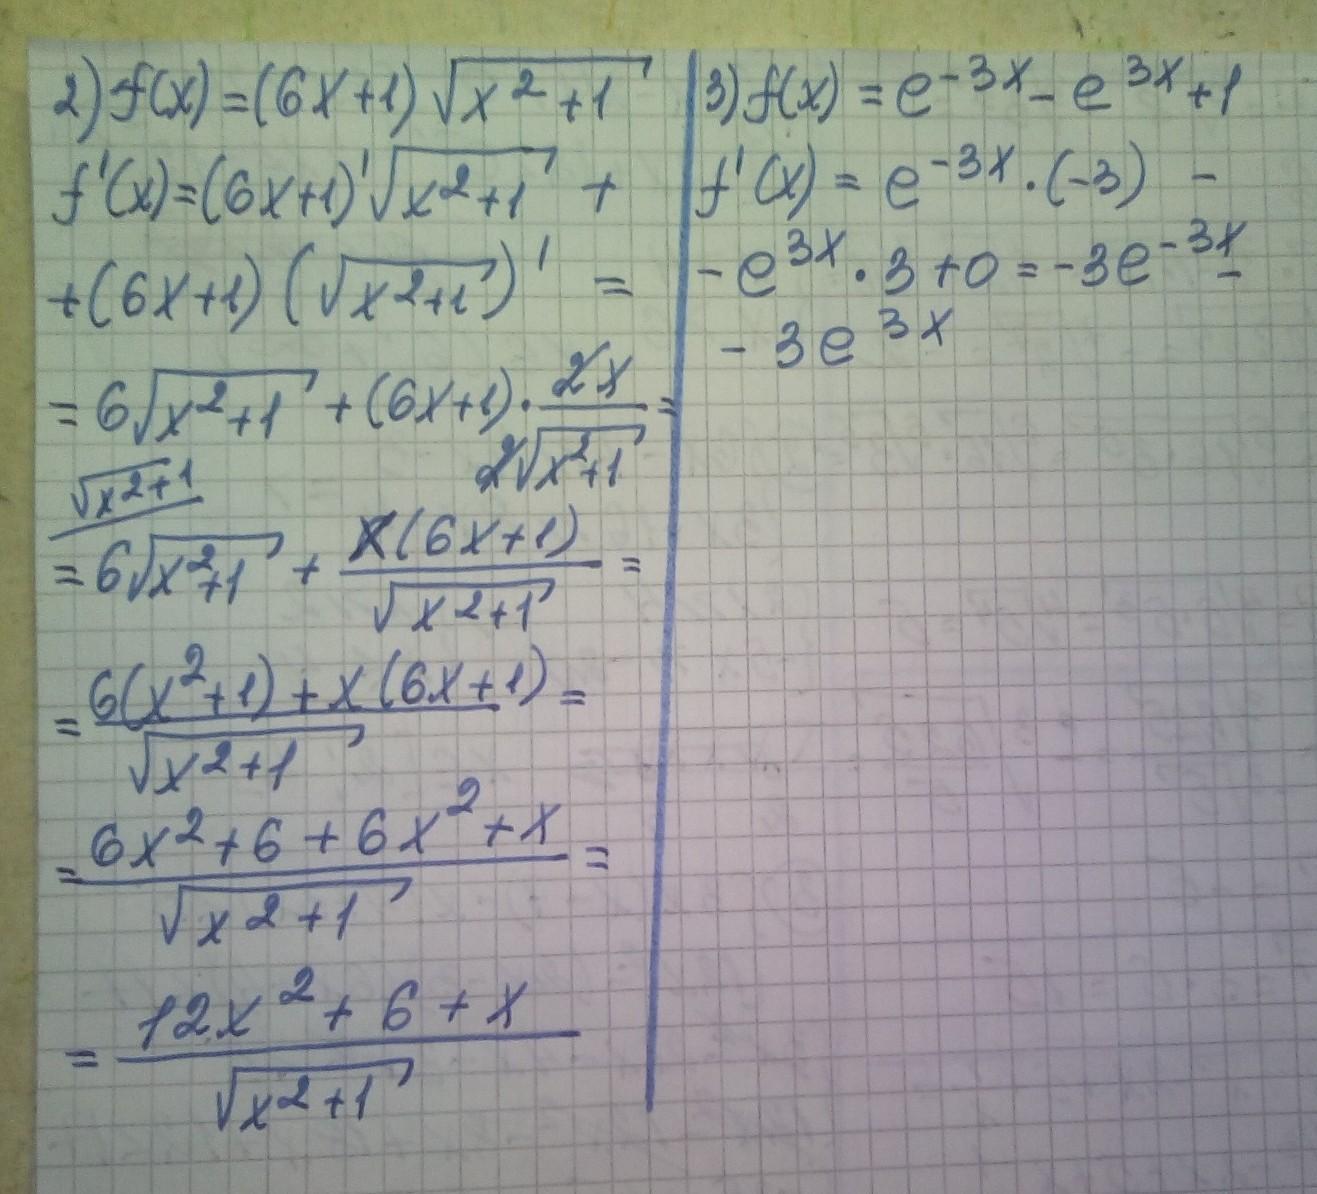 2) f(x) = (6x+1) √(x²+1)
f'(x) = (6x+1)' √(x²+1) +
+ (6x+1) (√(x²+1))' =
= 6√(x²+1) + (6x+1) · 2x / 2√(x²+1) =
√(x²+1)
= 6√(x²+1) + x(6x+1) / √(x²+1) =
= 6(x²+1) + x(6x+1) / √(x²+1) =
= 6x²+6+6x²+x / √(x²+1) =
= 12x²+6+x / √(x²+1)
3) f(x) = e⁻³ˣ - e³ˣ + 1
f'(x) = e⁻³ˣ · (-3) -
- e³ˣ · 3 + 0 = -3e⁻³ˣ -
- 3e³ˣ